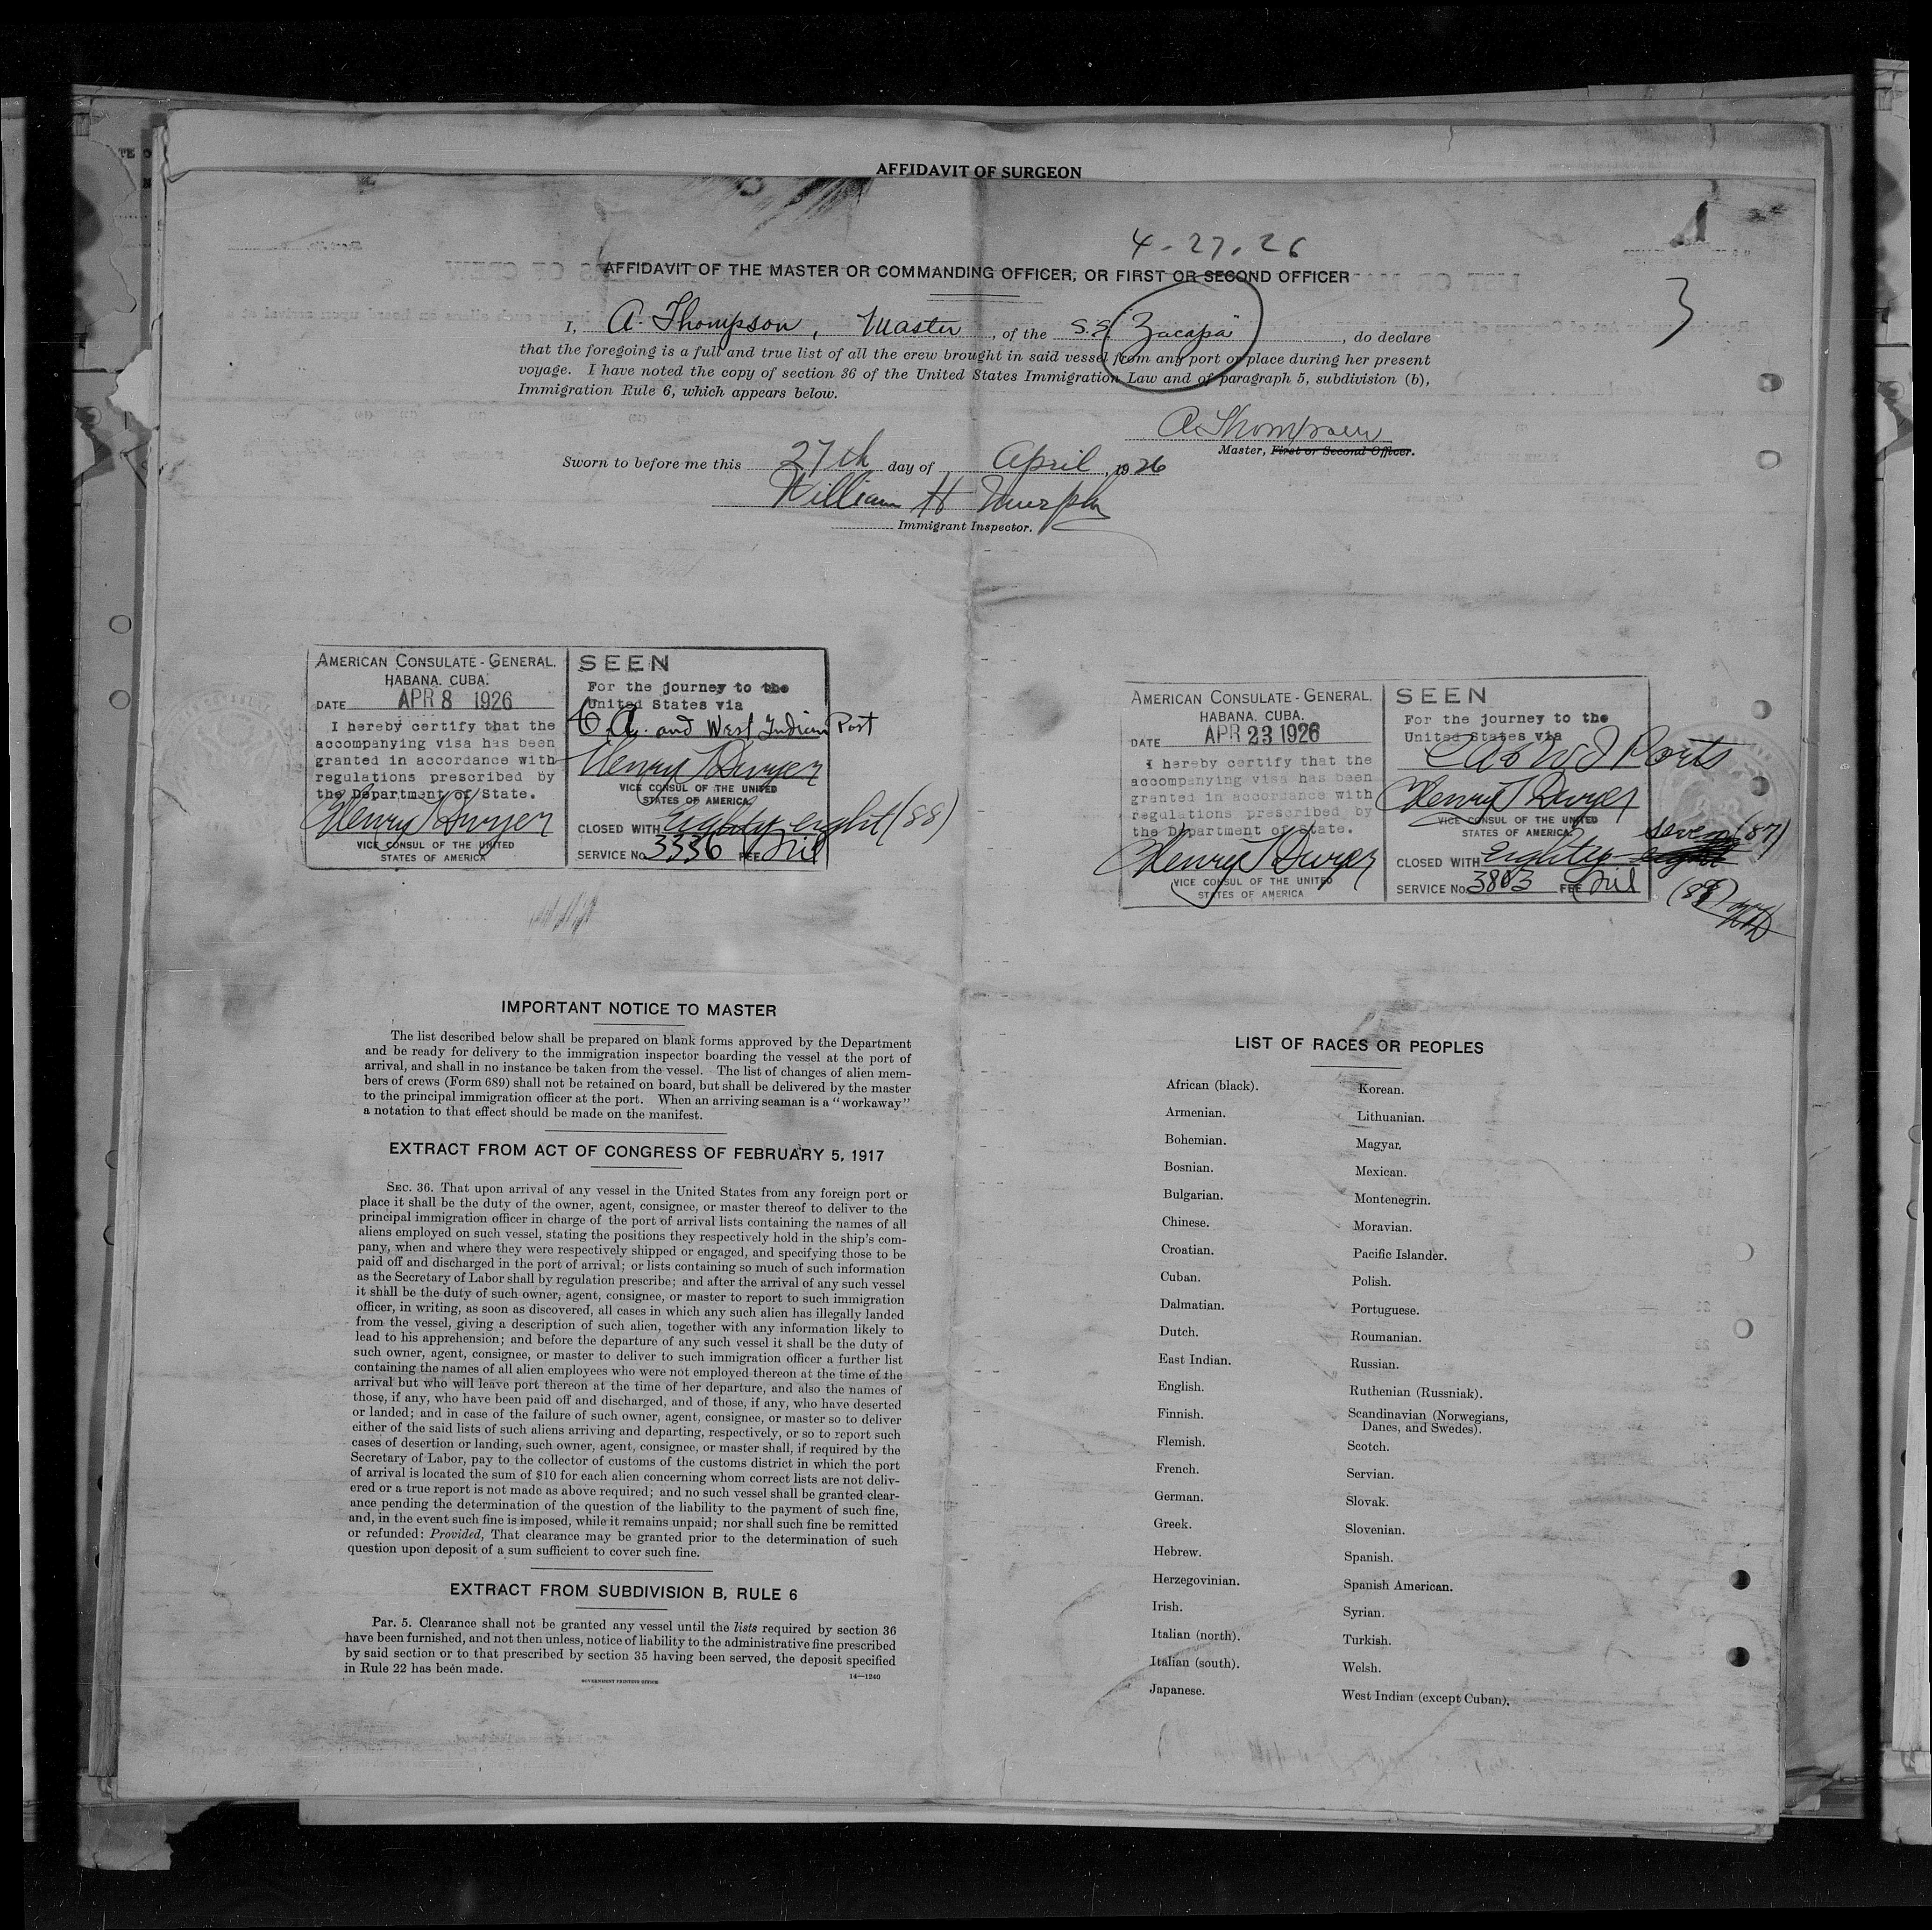 AFFIDAVIT OF SURGEON
4-27.26
AFFIDAVIT OF THE MASTER OR COMMANDING OFFICER, OR FIRST OR SECOND OFFICER
3
I, A. Thompson, Master, of the S.S. "Zacapa", do declare
that the foregoing is a full and true list of all the crew brought in said vessel from any port or place during her present
voyage. I have noted the copy of section 36 of the United States Immigration Law and of paragraph 5, subdivision (b),
Immigration Rule 6, which appears below.
A Thompson
Master, First or Second Officer.
Sworn to before me this 27th day of April, 1926
William H Murphy
Immigrant Inspector.
AMERICAN CONSULATE-GENERAL.
HABANA. CUBA.
DATE APR 8 1926
I hereby certify that the
accompanying visa has been
granted in accordance with
regulations prescribed by
the Department of State.
Henry T Dwyer
VICE CONSUL OF THE UNITED
STATES OF AMERICA
SEEN
For the journey to the
United States via
C.A. and West Indian Port
Henry T Dwyer
VICE CONSUL OF THE UNITED
STATES OF AMERICA
CLOSED WITH Eighty eight (88)
SERVICE No 3336 FEE Nil
AMERICAN CONSULATE-GENERAL.
HABANA. CUBA.
DATE APR 23 1926
I hereby certify that the
accompanying visa has been
granted in accordance with
regulations prescribed by
the Department of State.
Henry T Dwyer
VICE CONSUL OF THE UNITED
STATES OF AMERICA
SEEN
For the journey to the
United States via
Ports
Henry T Dwyer
VICE CONSUL OF THE UNITED
STATES OF AMERICA
seven (87)
CLOSED WITH Eighty eight
SERVICE No. 3803 FEE Nil
IMPORTANT NOTICE TO MASTER
The list described below shall be prepared on blank forms approved by the Department
and be ready for delivery to the immigration inspector boarding the vessel at the port of
arrival, and shall in no instance be taken from the vessel. The list of changes of alien mem-
bers of crews (Form 689) shall not be retained on board, but shall be delivered by the master
to the principal immigration officer at the port. When an arriving seaman is a "workaway"
a notation to that effect should be made on the manifest.
EXTRACT FROM ACT OF CONGRESS OF FEBRUARY 5, 1917
SEC. 36. That upon arrival of any vessel in the United States from any foreign port or
place it shall be the duty of the owner, agent, consignee, or master thereof to deliver to the
principal immigration officer in charge of the port of arrival lists containing the names of all
aliens employed on such vessel, stating the positions they respectively hold in the ship's com-
pany, when and where they were respectively shipped or engaged, and specifying those to be
paid off and discharged in the port of arrival; or lists containing so much of such information
as the Secretary of Labor shall by regulation prescribe; and after the arrival of any such vessel
it shall be the duty of such owner, agent, consignee, or master to report to such immigration
officer, in writing, as soon as discovered, all cases in which any such alien has illegally landed
from the vessel, giving a description of such alien, together with any information likely to
lead to his apprehension; and before the departure of any such vessel it shall be the duty of
such owner, agent, consignee, or master to deliver to such immigration officer a further list
containing the names of all alien employees who were not employed thereon at the time of the
arrival but who will leave port thereon at the time of her departure, and also the names of
those, if any, who have been paid off and discharged, and of those, if any, who have deserted
or landed; and in case of the failure of such owner, agent, consignee, or master so to deliver
either of the said lists of such aliens arriving and departing, respectively, or so to report such
cases of desertion or landing, such owner, agent, consignee, or master shall, if required by the
Secretary of Labor, pay to the collector of customs of the customs district in which the port
of arrival is located the sum of $10 for each alien concerning whom correct lists are not deliv-
ered or a true report is not made as above required; and no such vessel shall be granted clear-
ance pending the determination of the question of the liability to the payment of such fine,
and, in the event such fine is imposed, while it remains unpaid; nor shall such fine be remitted
or refunded: Provided, That clearance may be granted prior to the determination of such
question upon deposit of a sum sufficient to cover such fine.
EXTRACT FROM SUBDIVISION B, RULE 6
Par. 5. Clearance shall not be granted any vessel until the lists required by section 36
have been furnished, and not then unless, notice of liability to the administrative fine prescribed
by said section or to that prescribed by section 35 having been served, the deposit specified
in Rule 22 has been made.
14—1240
GOVERNMENT PRINTING OFFICE
LIST OF RACES OR PEOPLES
African (black).
Armenian.
Bohemian.
Bosnian.
Bulgarian.
Chinese.
Croatian.
Cuban.
Dalmatian.
Dutch.
East Indian.
English.
Finnish.
Flemish.
French.
German.
Greek.
Hebrew.
Herzegovinian.
Irish.
Italian (north).
Italian (south).
Japanese.
Korean.
Lithuanian.
Magyar.
Mexican.
Montenegrin.
Moravian.
Pacific Islander.
Polish.
Portuguese.
Roumanian.
Russian.
Ruthenian (Russniak).
Scandinavian (Norwegians,
Danes, and Swedes).
Scotch.
Servian.
Slovak.
Slovenian.
Spanish.
Spanish American.
Syrian.
Turkish.
Welsh.
West Indian (except Cuban).